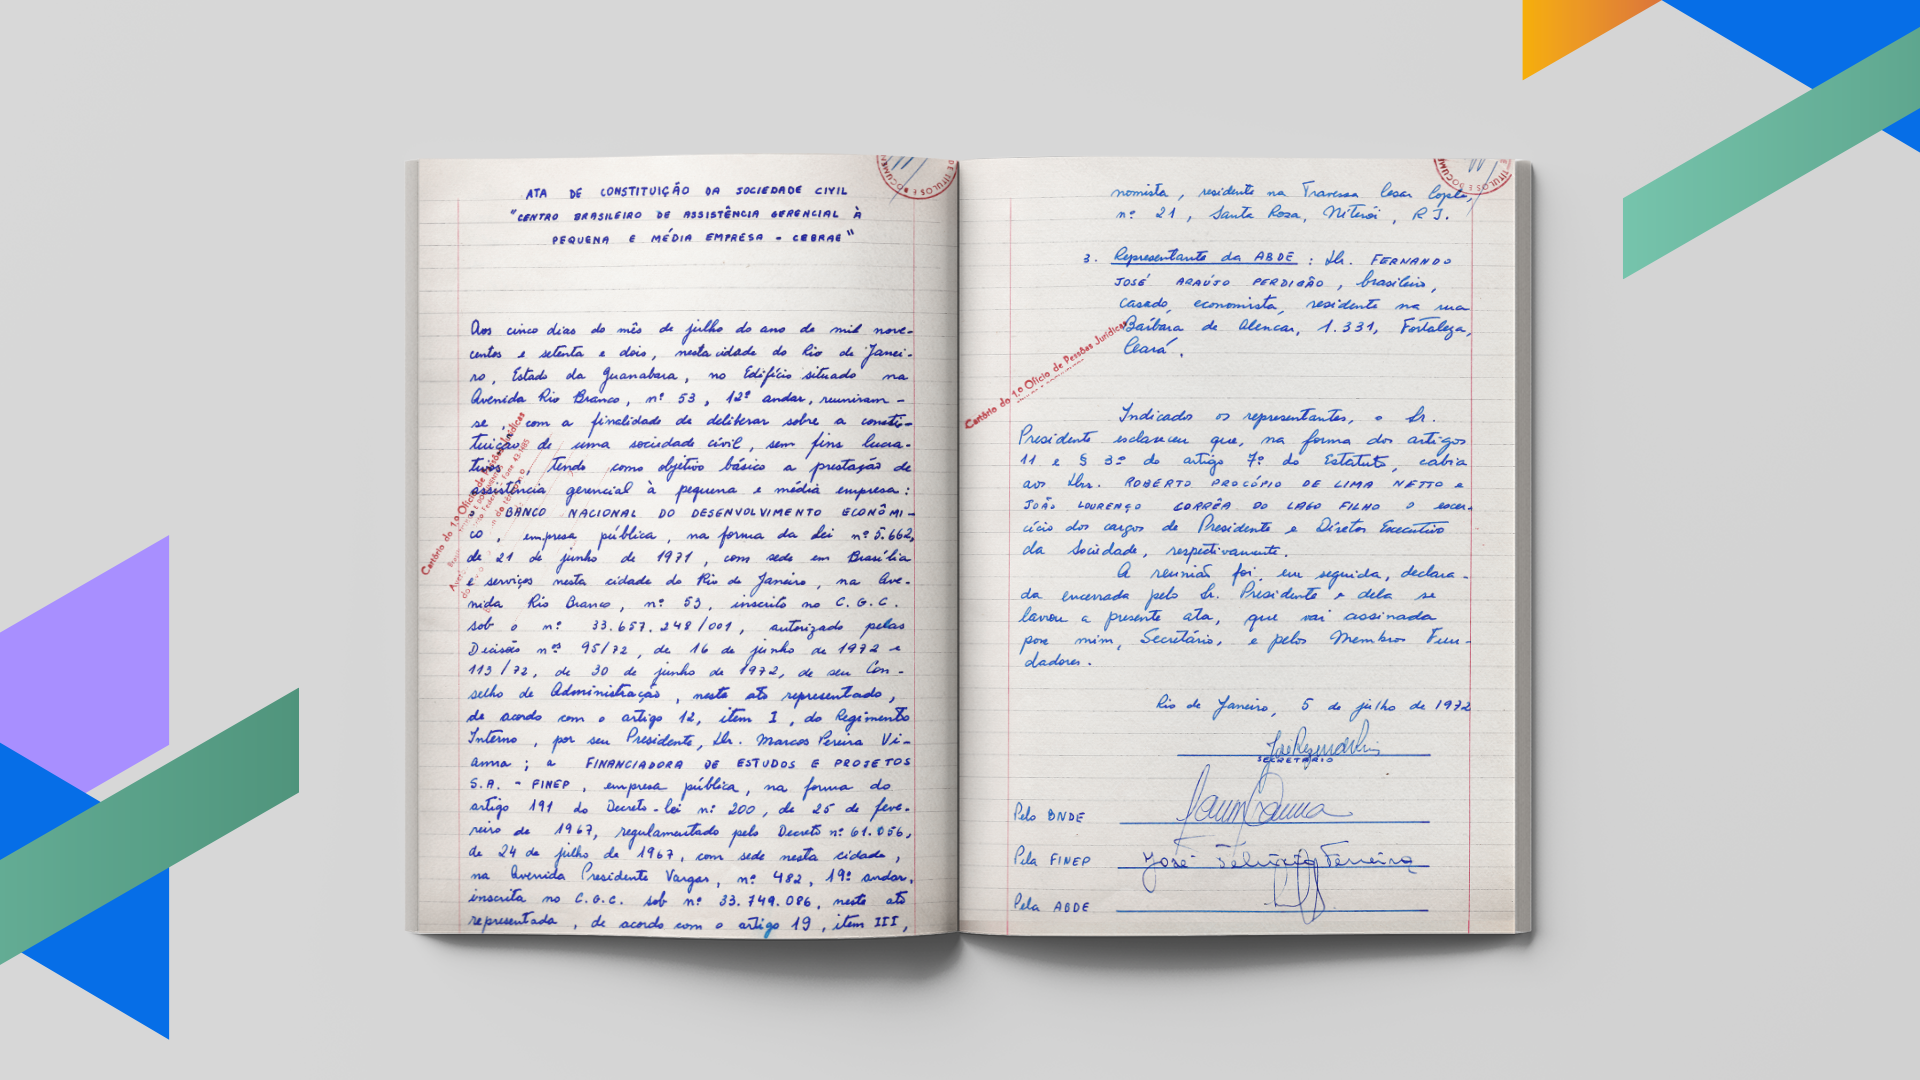 ATA DE CONSTITUIÇÃO DA SOCIEDADE CIVIL
"CENTRO BRASILEIRO DE ASSISTÊNCIA GERENCIAL À
PEQUENA E MÉDIA EMPRESA - CEBRAE"
Aos cinco dias do mês de julho do ano de mil nove-
centos e setenta e dois, nesta cidade do Rio de Janei-
ro, Estado da Guanabara, no Edifício situado na
Avenida Rio Branco, nº 53, 12º andar, reuniram-
se, com a finalidade de deliberar sobre a consti-
tuição de uma sociedade civil, sem fins lucra-
tivos, tendo como objetivo básico a prestação de
assistência gerencial à pequena e média empresa:
o BANCO NACIONAL DO DESENVOLVIMENTO ECONÔMI-
CO, empresa pública, na forma da Lei nº 5.662,
de 21 de junho de 1971, com sede em Brasília
e serviços nesta cidade do Rio de Janeiro, na Ave-
nida Rio Branco, nº 53, inscrito no C.G.C.
sob o nº 33.657.248/001, autorizado pelas
Decisões nºs 95/72, de 16 de junho de 1972 e
113/72, de 30 de junho de 1972, de seu Con-
selho de Administração, neste ato representado,
de acordo com o artigo 12, item I, do Regimento
Interno, por seu Presidente, Dr. Marcos Pereira Vi-
anna; a FINANCIADORA DE ESTUDOS E PROJETOS
S.A. - FINEP, empresa pública, na forma do
artigo 191 do Decreto-lei nº 200, de 25 de feve-
reiro de 1967, regulamentado pelo Decreto nº 61.056,
de 24 de julho de 1967, com sede nesta cidade,
na Avenida Presidente Vargas, nº 482, 19º andar,
inscrita no C.G.C. sob nº 33.749.086, neste ato
representada, de acordo com o artigo 19, item III,
Cartório do 1.o Ofício de Pessoas Jurídicas
DE TITULOS E DOCUMEN
nomista, residente na Travessa Cesar
nº 21, Santa Rosa, Niterói, R J.
3. Representante da ABDE: Dr. FERNANDO
JOSÉ ARAÚJO PERDIGÃO, brasileiro,
casado, economista, residente na rua
Bárbara de Alencar, 1.331, Fortaleza,
Ceará.
Cartório do 1.o Ofício de Pessôas Jurídicas
Indicados os representantes, o Sr.
Presidente esclareceu que, na forma dos artigos
11 e § 3º do artigo 7º do Estatuto, cabia
aos Drs. ROBERTO PROCÓPIO DE LIMA NETTO e
JOÃO LOURENÇO CORRÊA DO LAGO FILHO o exer-
cício dos cargos de Presidente e Diretor Executivo
da Sociedade, respectivamente.
A reunião foi, em seguida, declara-
da encerrada pelo Sr. Presidente e dela se
lavrou a presente ata, que vai assinada
por mim, Secretário, e pelos Membros Fun-
dadores.
Rio de Janeiro, 5 de julho de 1972
SECRETÁRIO
Pelo BNDE
Pela FINEP
Pela ABDE